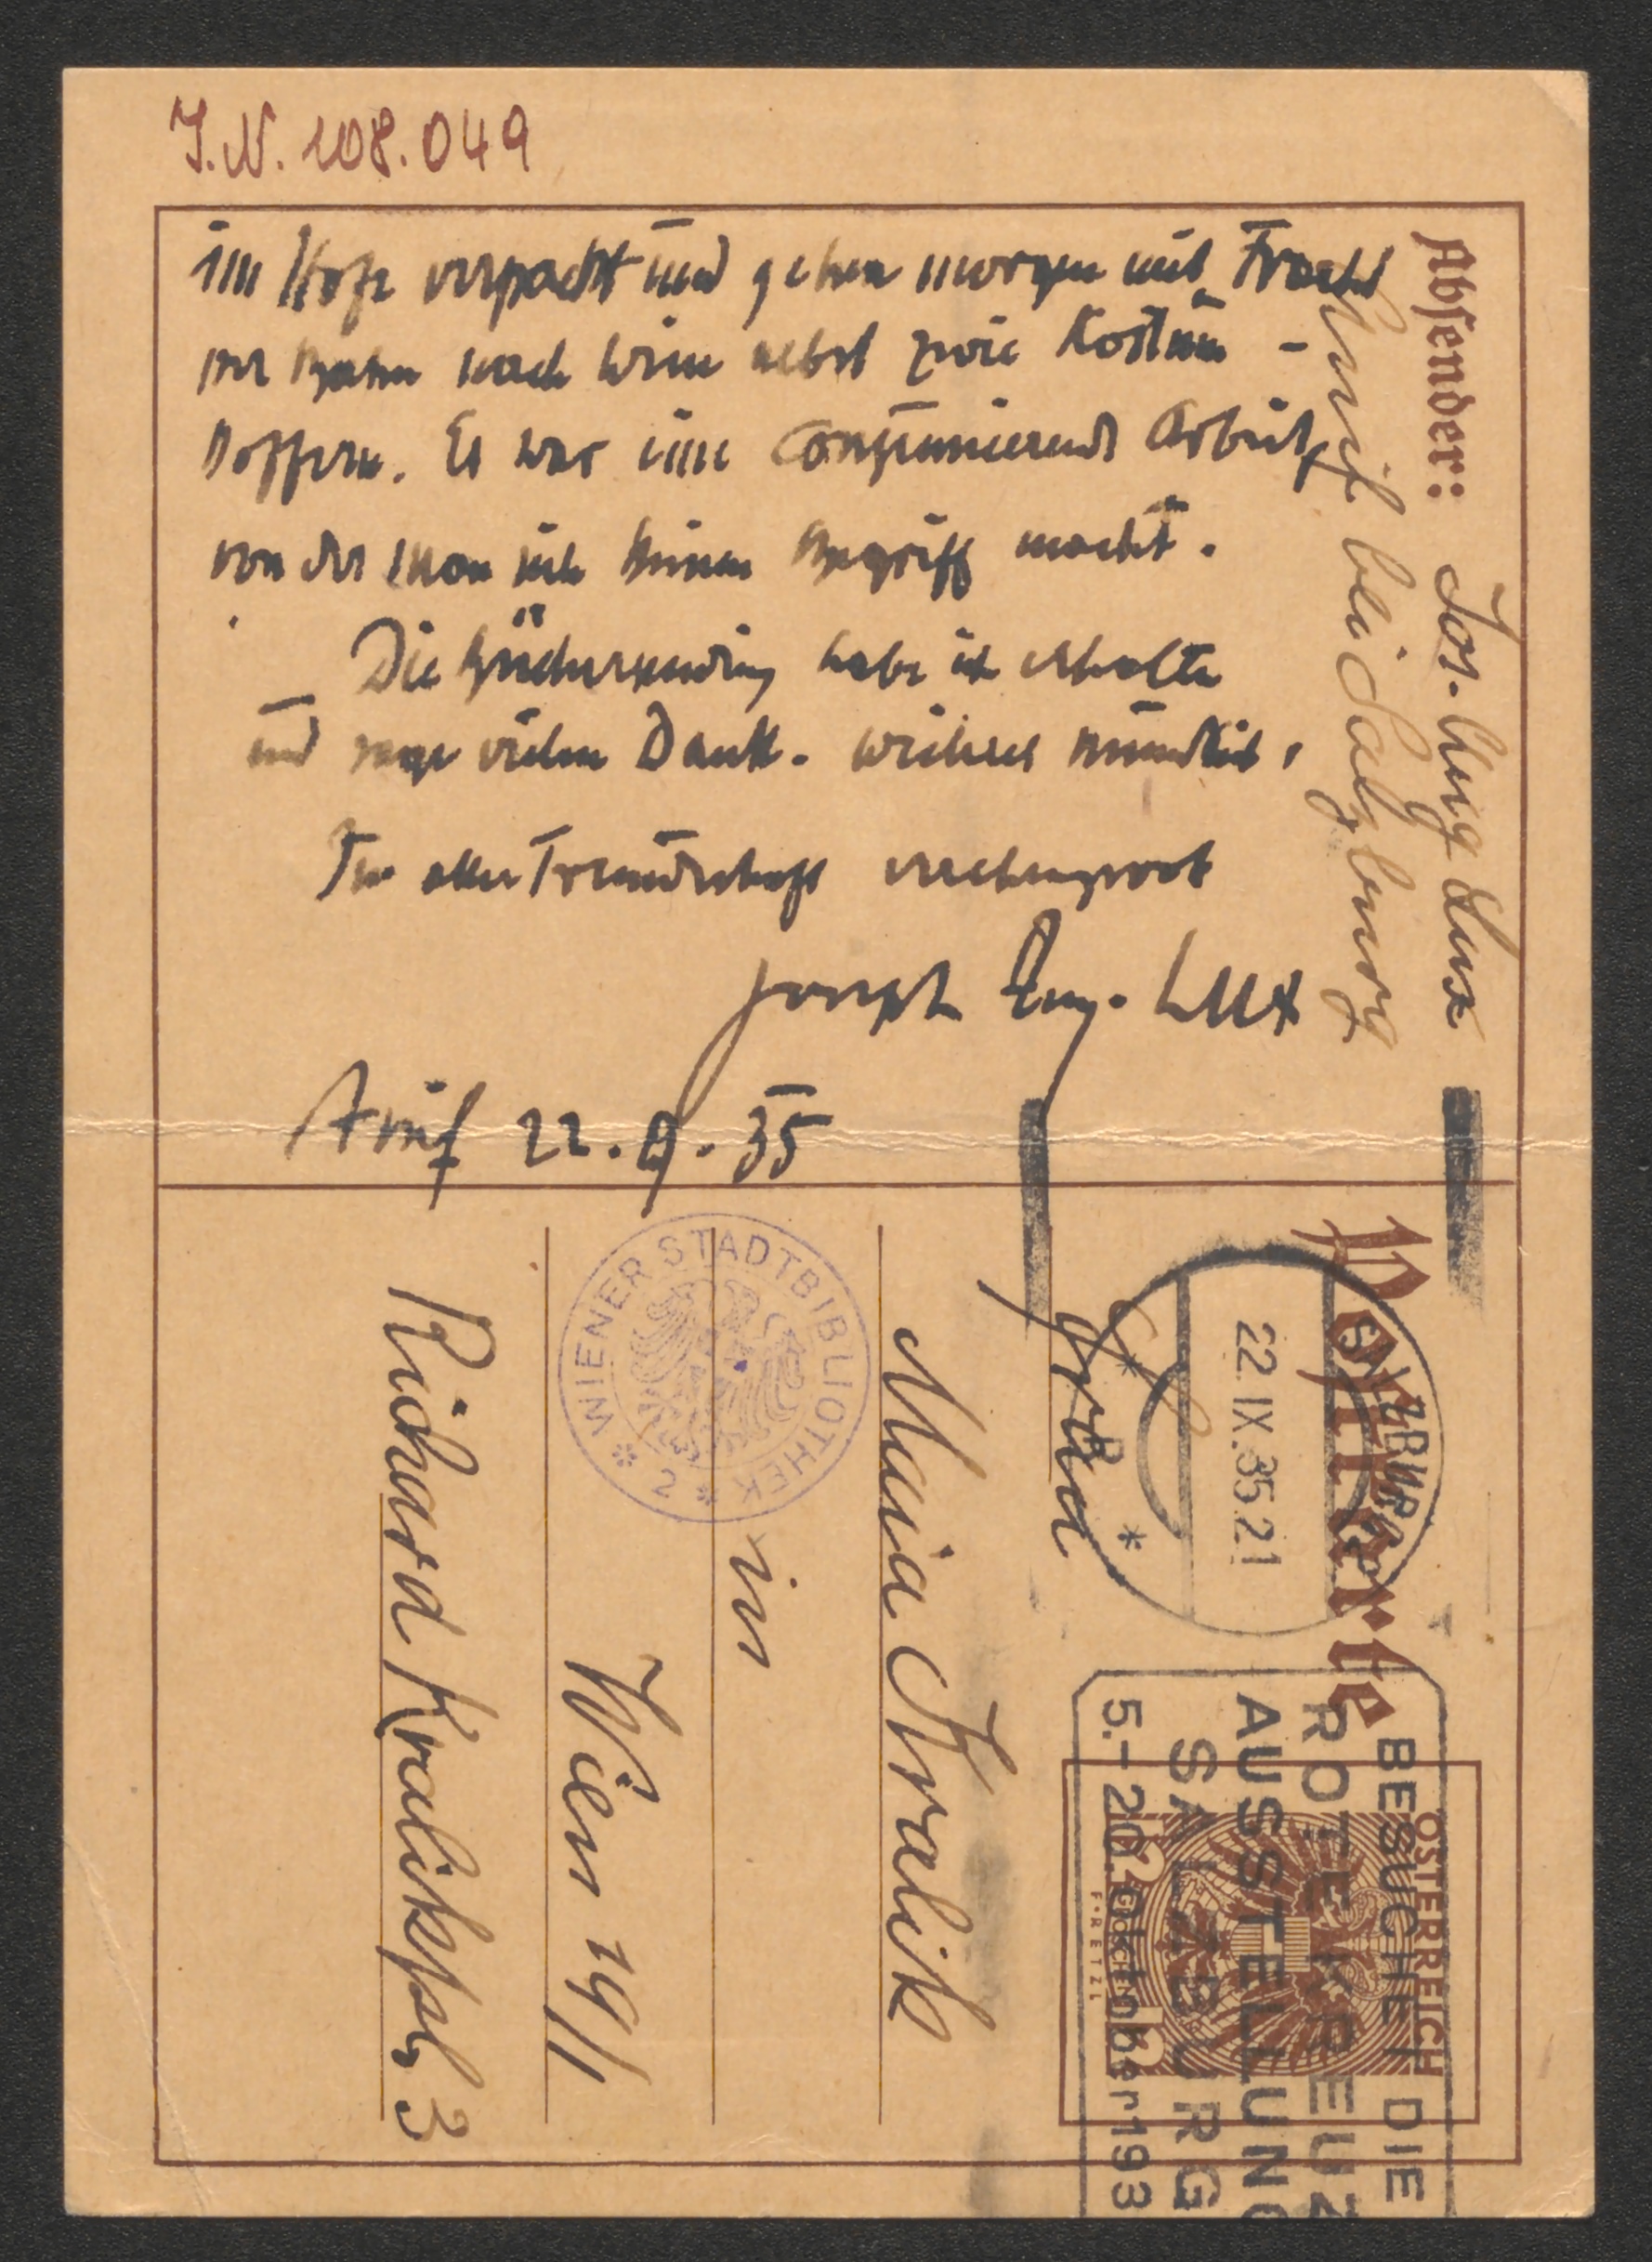 J.N. 108.049
im Hofe verpackt und gehen morgen mit Fracht
per Bahn nach Wien nebst zwei Kostüm-
koffern. Es war eine consumierende Arbeit,
von der man sich keinen Begriff macht.
Die Büchersendung habe ich erhalten
und sage vielen Dank. Weiteres mündlich,
In aller Freundschaft
Joseph Aug. Lux
Anif 22.9.35
Absender: Jos. Aug Lux
Anif bei Salzburg
Postkarte
SALZBURG
22.IX.35.21
BESUCHE DIE
ROTE KREUZ
AUSSTELLUNG
SALZBURG
5.-20. Oktober 193
ÖSTERREICH
GROSCHEN
F·RETZL
Frau
Maria Kralik
in
Wien 19/1
Richard Kralikpl. 3
WIENER STADTBIBLIOTHEK * 2 *